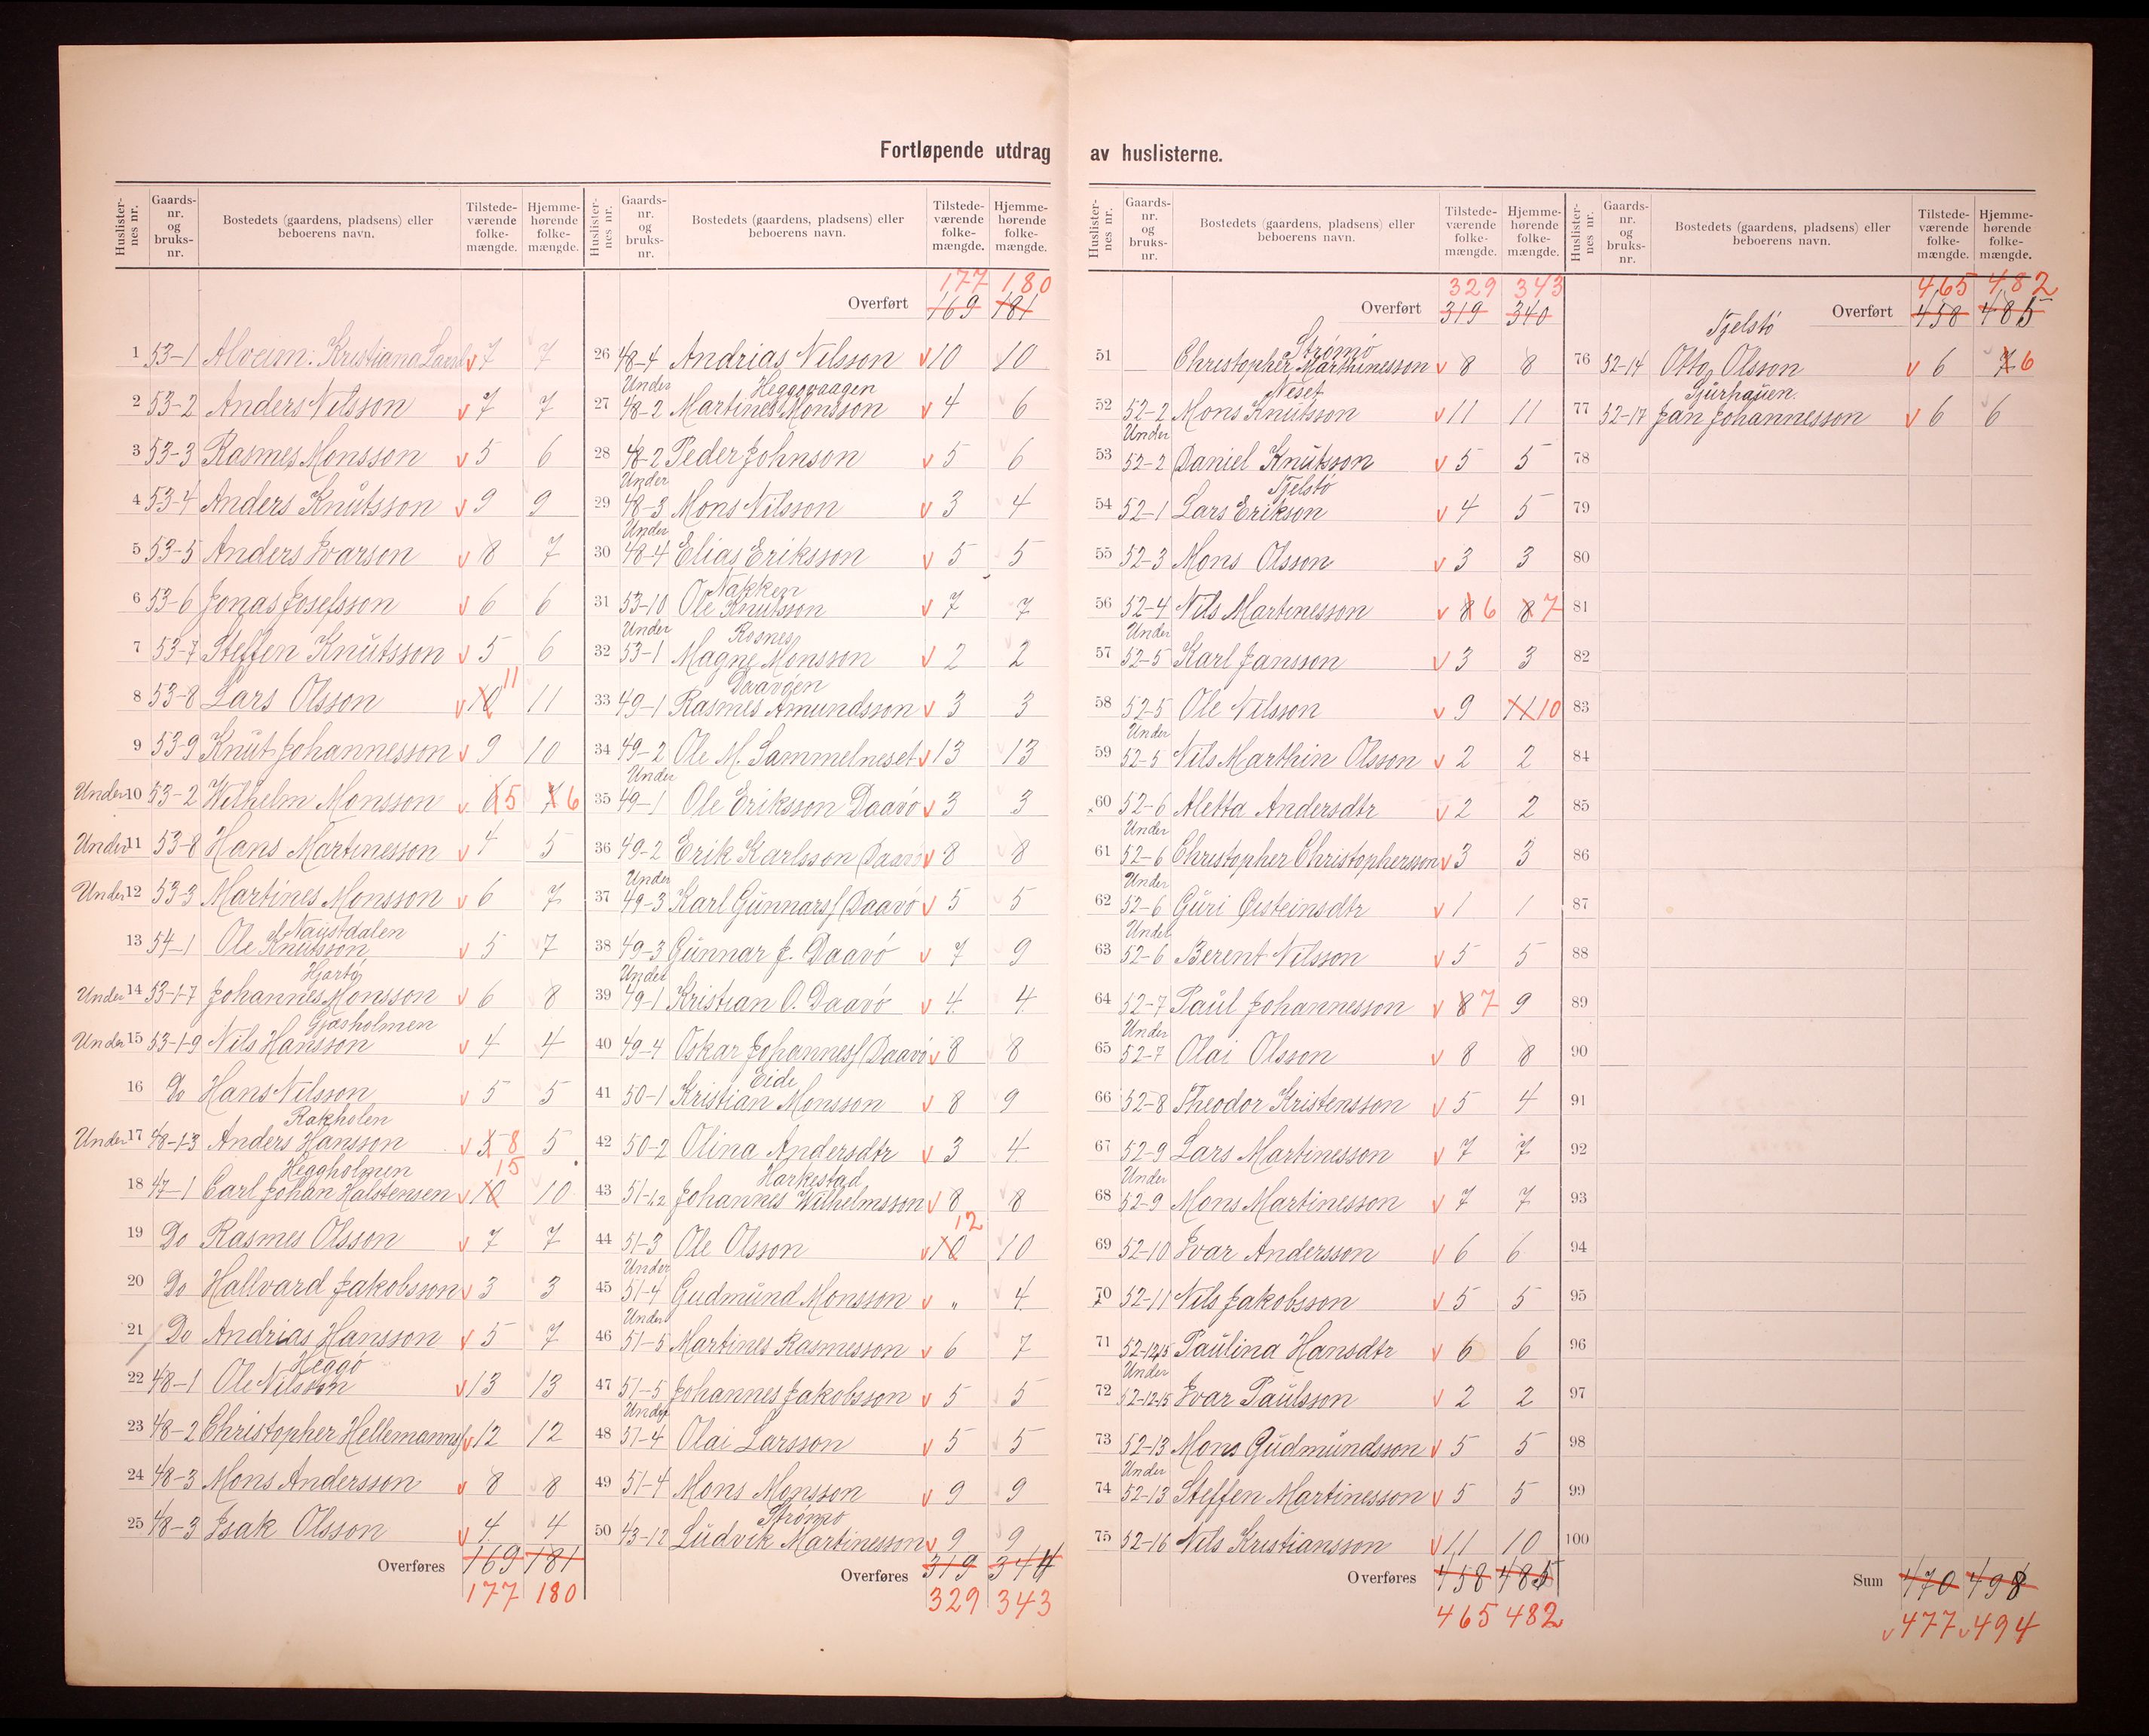 Fortløpende utdrag av huslisterne.
Huslister-nes nr. Gaards-nr. og bruks-nr. Bostedets (gaardens, pladsens) eller beboerens navn. Tilstede-værende folke-mængde. Hjemme-hørende folke-mængde.
1 53-1 Alveim: Kristiana Larsd v 7 7
2 53-2 Anders Nilsson v 7 7
3 53-3 Rasmes Monsson v 5 6
4 53-4 Anders Knutsson v 9 9
5 53-5 Anders Ivarson v 8 7
6 53-6 Jonas Josefsson v 6 6
7 53-7 Steffen Knutsson v 5 6
8 53-8 Lars Olsson v 10 11 11
9 53-9 Knut Johannesson v 9 10
Under 10 53-2 Wilhelm Monsson v 6 5 7 6
Under 11 53-8 Hans Martinesson v 4 5
Under 12 53-3 Martines Monsson v 6 7
Naustdalen
13 54-1 Ole Knutsson v 5 7
Hjartø
Under 14 53-1-7 Johannes Monsson v 6 8
Gjæsholmen
Under 15 53-1-9 Nils Hansson v 4 4
16 Do Hans Nilsson v 5 5
Rakholen
Under 17 48-1-3 Anders Hansson v 5 8 5
Heggholmen
18 47-1 Carl Johan Halstensen v 10 15 10
19 Do Rasmes Olsson v 7 7
20 Do Hallvard Jakobsson v 3 3
21 Do Andrias Hansson v 5 7
Heggø
22 48-1 Ole Nilsson v 13 13
23 48-2 Christopher Hellemannsf v 12 12
24 48-3 Mons Andersson v 8 8
25 48-3 Isak Olsson v 4 4
Overføres 169 181
177 180
Huslister-nes nr. Gaards-nr. og bruks-nr. Bostedets (gaardens, pladsens) eller beboerens navn. Tilstede-værende folke-mængde. Hjemme-hørende folke-mængde.
177 180
Overført 169 181
26 48-4 Andrias Nilsson v 10 10
Under Heggøvaagen
27 48-2 Martines Monsson v 4 6
28 48-2 Peder Johnson v 5 6
Under
29 48-3 Mons Nilsson v 3 4
Under
30 48-4 Elias Eriksson v 5 5
Nakken
31 53-10 Ole Knutsson v 7 7
Under Rosnes
32 53-1 Magne Monsson v 2 2
Daavøen
33 49-1 Rasmes Amundsson v 3 3
34 49-2 Ole M. Sammelneset v 13 13
Under
35 49-1 Ole Eriksson Daavø v 3 3
36 49-2 Erik Karlsson Daavø v 8 8
Under
37 49-3 Karl Gunnarsf Daavø v 5 5
38 49-3 Gunnar J. Daavø v 7 9
Under
39 49-1 Kristian O. Daavø v 4 4
40 49-4 Oskar Johannesf Daavø v 8 8
Eide
41 50-1 Kristian Monsson v 8 9
42 50-2 Olina Andersdtr v 3 4
Harkestad
43 51-1,2 Johannes Wilhelmsson v 8 8
44 51-3 Ole Olsson v 10 12 10
Under
45 51-4 Gudmund Monsson v " 4
Under
46 51-5 Martines Rasmesson v 6 7
47 51-5 Johannes Jakobsson v 5 5
Under
48 51-4 Olai Larsson v 5 5
49 51-4 Mons Monsson v 9 9
Strømø
50 43-12 Ludvik Martinesson v 9 9
Overføres 319 344
329 343
Huslister-nes nr. Gaards-nr. og bruks-nr. Bostedets (gaardens, pladsens) eller beboerens navn. Tilstede-værende folke-mængde. Hjemme-hørende folke-mængde.
329 343
Overført 319 340
Strømø
51 — Christopher Marthinesson v 8 8
Neset
52 52-2 Mons Knutsson v 11 11
Under
53 52-2 Daniel Knutsson v 5 5
Tjelstø
54 52-1 Lars Erikson v 4 5
55 52-3 Mons Olsson v 3 3
56 52-4 Nils Martinesson v 8 6 8 7
Under
57 52-5 Karl Jansson v 3 3
58 52-5 Ole Nilsson v 9 11 10
Under
59 52-5 Nils Marthin Olsson v 2 2
60 52-6 Aletta Andersdtr v 2 2
Under
61 52-6 Christopher Christophersson v 3 3
Under
62 52-6 Guri Øisteinsdtr v 1 1
Under
63 52-6 Berent Nilsson v 5 5
64 52-7 Paul Johannesson v 8 7 9
Under
65 52-7 Olai Olsson v 8 8
66 52-8 Theodor Kristensson v 5 4
67 52-9 Lars Martinesson v 7 7
Under
68 52-9 Mons Martinesson v 7 7
69 52-10 Ivar Andersson v 6 6
70 52-11 Nils Jakobsson v 5 5
71 52-12,15 Paulina Hansdtr v 6 6
Under
72 52-12-15 Ivar Paulsson v 2 2
73 52-13 Mons Gudmundsson v 5 5
Under
74 52-13 Steffen Martinesson v 5 5
75 52-16 Nils Kristiansson v 11 10
Overføres 458 485
465 482
Huslister-nes nr. Gaards-nr. og bruks-nr. Bostedets (gaardens, pladsens) eller beboerens navn. Tilstede-værende folke-mængde. Hjemme-hørende folke-mængde.
465 482
Overført 458 485
Tjelstø
76 52-14 Otto Olsson v 6 7 6
Sjurhauen.
77 52-17 Jan Johannesson v 6 6
78
79
80
81
82
83
84
85
86
87
88
89
90
91
92
93
94
95
96
97
98
99
100
Sum 470 498
v 477 v 494